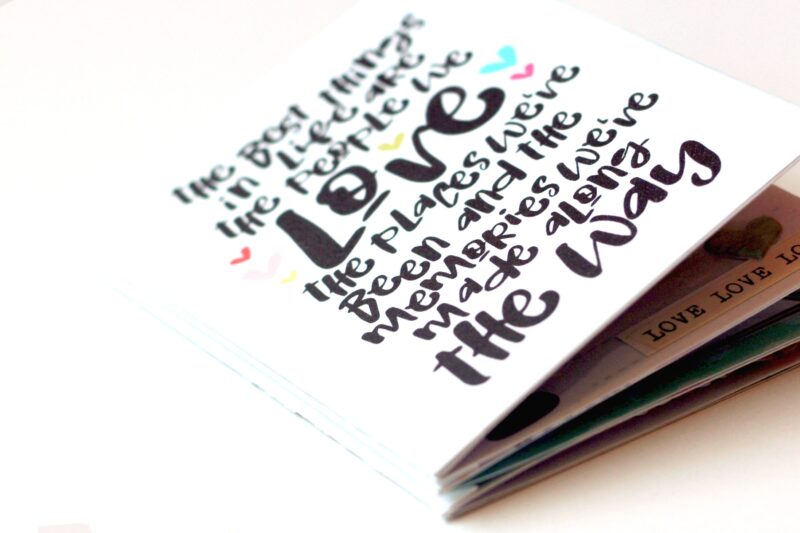 THE BEST THINGS
IN LIFE ARE
THE PEOPLE WE
LOVE
THE PLACES WE'VE
BEEN AND THE
MEMORIES WE'VE
MADE ALONG
THE WAY
LOVE LOVE LO